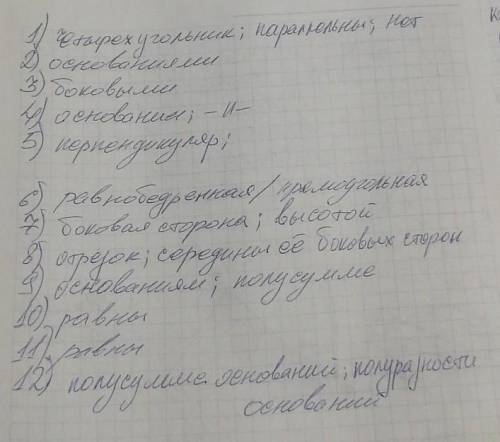 1) четырехугольник; параллельны; нет
2) основаниями
3) боковыми
4) основании; -//-
5) перпендикуляр;
6) равнобедренная/прямоугольная
7) боковая сторона; высотой
8) отрезок; середины её боковых сторон
9) основаниям; полусумме
10) равны
11) равны
12) полусумме оснований; полуразности
оснований